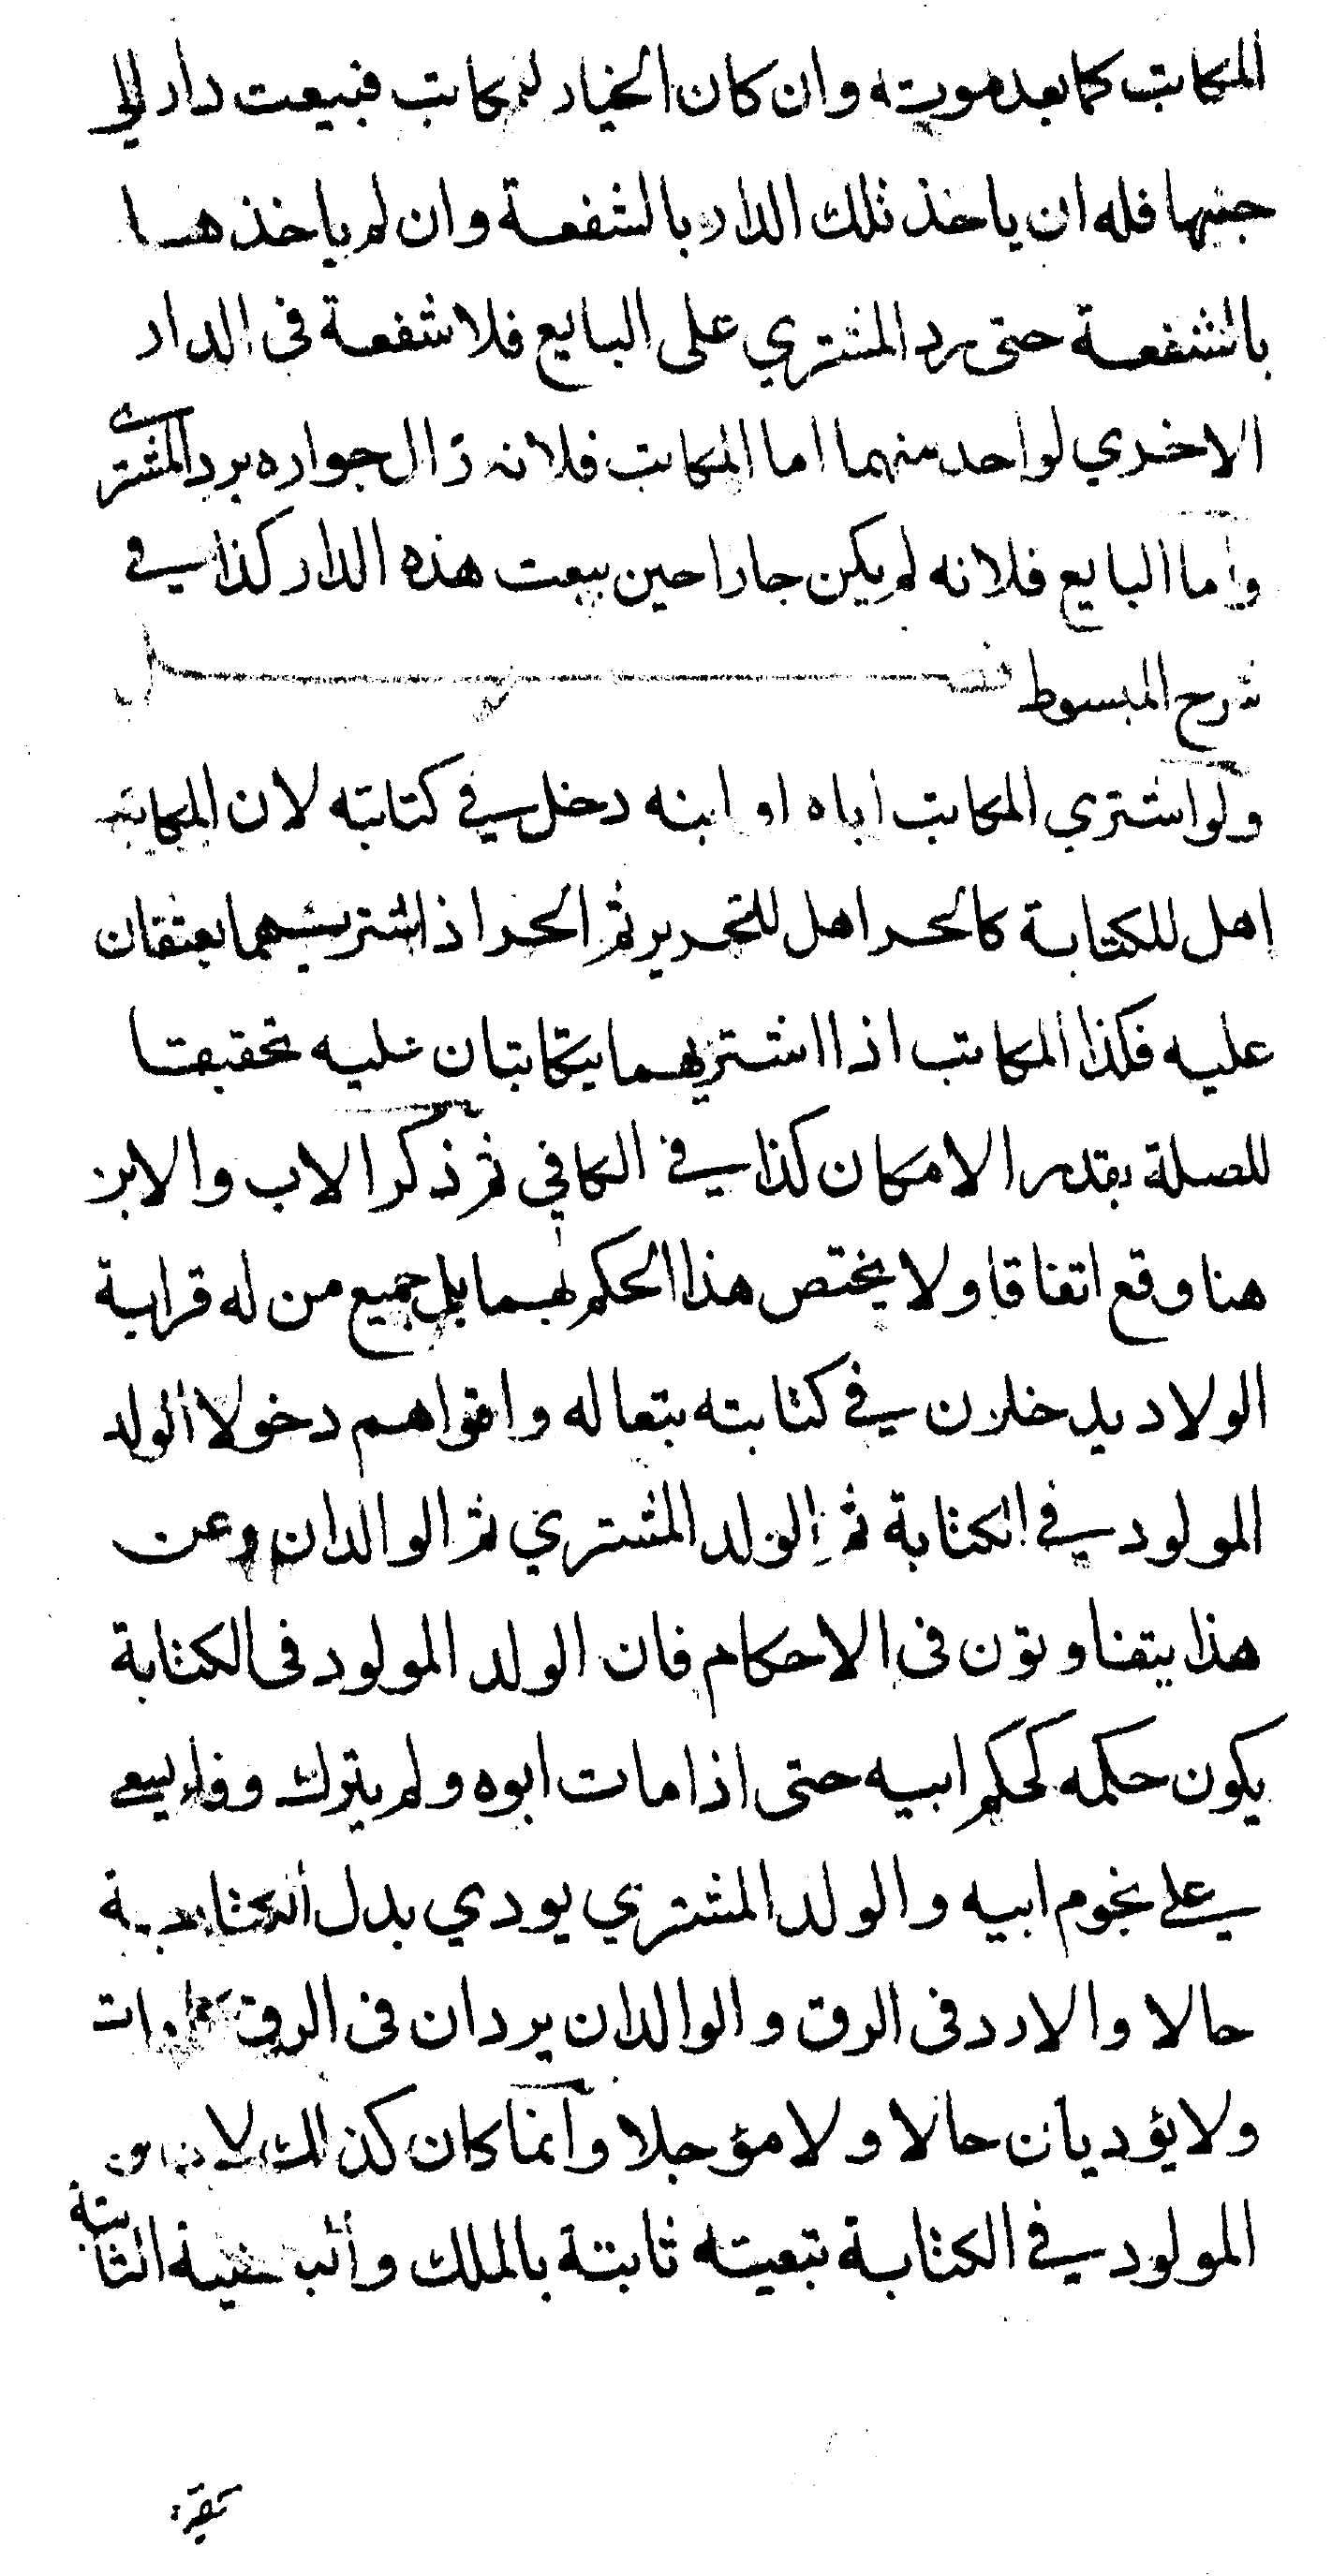 المكاتب كما بعد موته وان كان الخيار للمكاتب فبيعت دار الي
جنبها فله ان ياخذ تلك الدار بالشفعة وان لم ياخذهــا
بالشفعــة حتى يرد المشتري على البايع فلا شفعــة فى الدار
الاخري لواحد منهما اما المكاتب فلانه زال جواره برد المشتري
واما البايع فلانه لم يكن جارا حين بيعت هذه الدار كذا في
شرح المبسوط فصل
ولو اشتري المكاتب اباه او ابنه دخل في كتابته لان المكاتب
اهل للكتابــة كالحر اهل للتحرير ثم الحر اذا اشتريهما يعتقان
عليه فكذا المكاتب اذا اشتريهما يتكاتبان عليه تحقيقا
للصلة بقدر الامكان كذا في الكافي ثم ذكر الاب والابن
هنا وقع اتفاقا ولا يختص هذا الحكم بهما بل جميع من له قرابة
الولاد يدخلون في كتابته تبعا له واقواهم دخولا الولد
المولود في الكتابة ثم الولد المشتري ثم الوالدان وعن
هذا يتفاوتون فى الاحكام فان الولد المولود فى الكتابة
يكون حكمه كحكم ابيه حتى اذا مات ابوه ولم يترك وفاء يسعي
علي نجوم ابيه والولد المشتري يودي بدل الكتابــة
حالا والا رد فى الرق والوالدان يردان فى الرق كما مات
ولا يؤديان حالا ولا مؤجلا وانما كان كذلك لان
المولود في الكتابــة تبعيته ثابتة بالملك و الثابتة